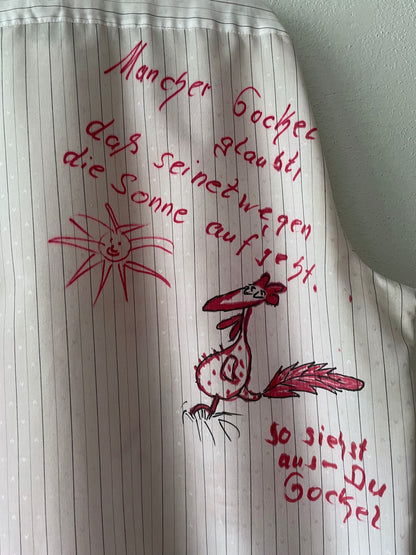 Mancher Gockel
glaubt,
daß seinetwegen
die Sonne aufgeht.
so siehst
aus - Du
Gockel